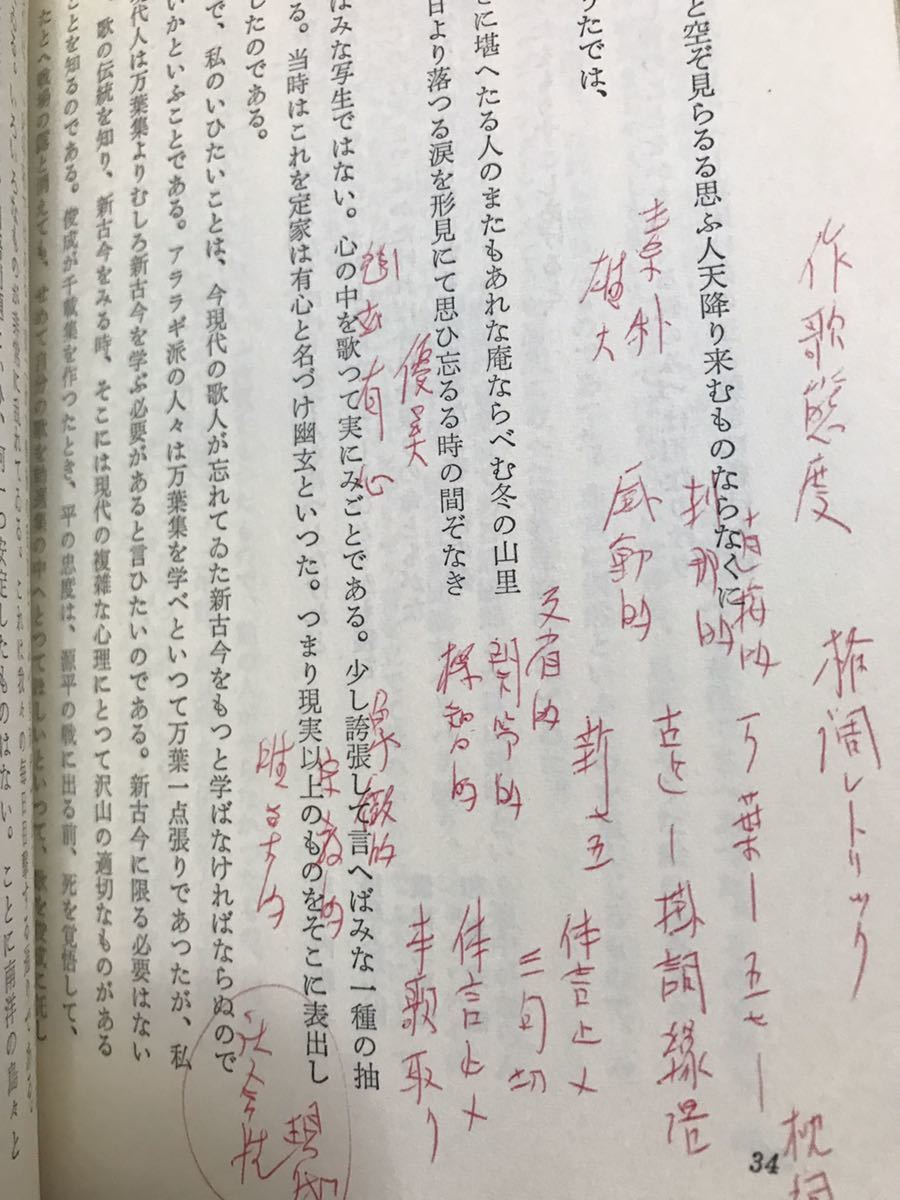 作歌態度
格調レトリック
枕詞
と空ぞ見らるる思ふ人天降り来むものならなくに
素朴
雄大
感動的
刹那的
直接的
万葉ー五七ー
古近ー掛詞縁語
新七五
体言止メ
三句切
体言止メ
本歌取り
反省的
観念的
理智的
象徴的
優美
幽玄有心
唯美的
社会性
現代
つたでは、
に堪へたる人のまたもあれな庵ならべむ冬の山里
日より落つる涙を形見にて思ひ忘るる時の間ぞなき
はみな写生ではない。心の中を歌つて実にみごとである。少し誇張して言へばみな一種の抽
る。当時はこれを定家は有心と名づけ幽玄といつた。つまり現実以上のものをそこに表出し
したのである。
で、私のいひたいことは、今現代の歌人が忘れてゐた新古今をもつと学ばなければならぬので
いかといふことである。アララギ派の人々は万葉集を学べといつて万葉一点張りであつたが、私
現代人は万葉集よりむしろ新古今を学ぶ必要があると言ひたいのである。新古今に限る必要はない
歌の伝統を知り、新古今をみる時、そこには現代の複雑な心理にとつて沢山の適切なものがある
ことを知るのである。俊成が千載集を作つたとき、平の忠度は、源平の戦に出る前、死を覚悟して、
たとへ戦場の露と消えても、せめて自分の歌を勅選集の中へとつてほしいといつて、歌を俊成に託し
安定したものはない。ことに南洋の島々と
34